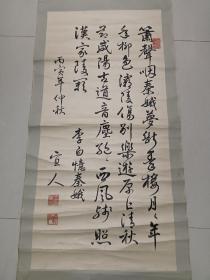 簫聲咽秦娥夢斷秦樓月々年
年柳色灞陵傷別樂遊原上清秋
節咸陽古道音塵絕々西風殘照
漢家陵闕
李白憶秦娥
丙寅年仲秋
宣人